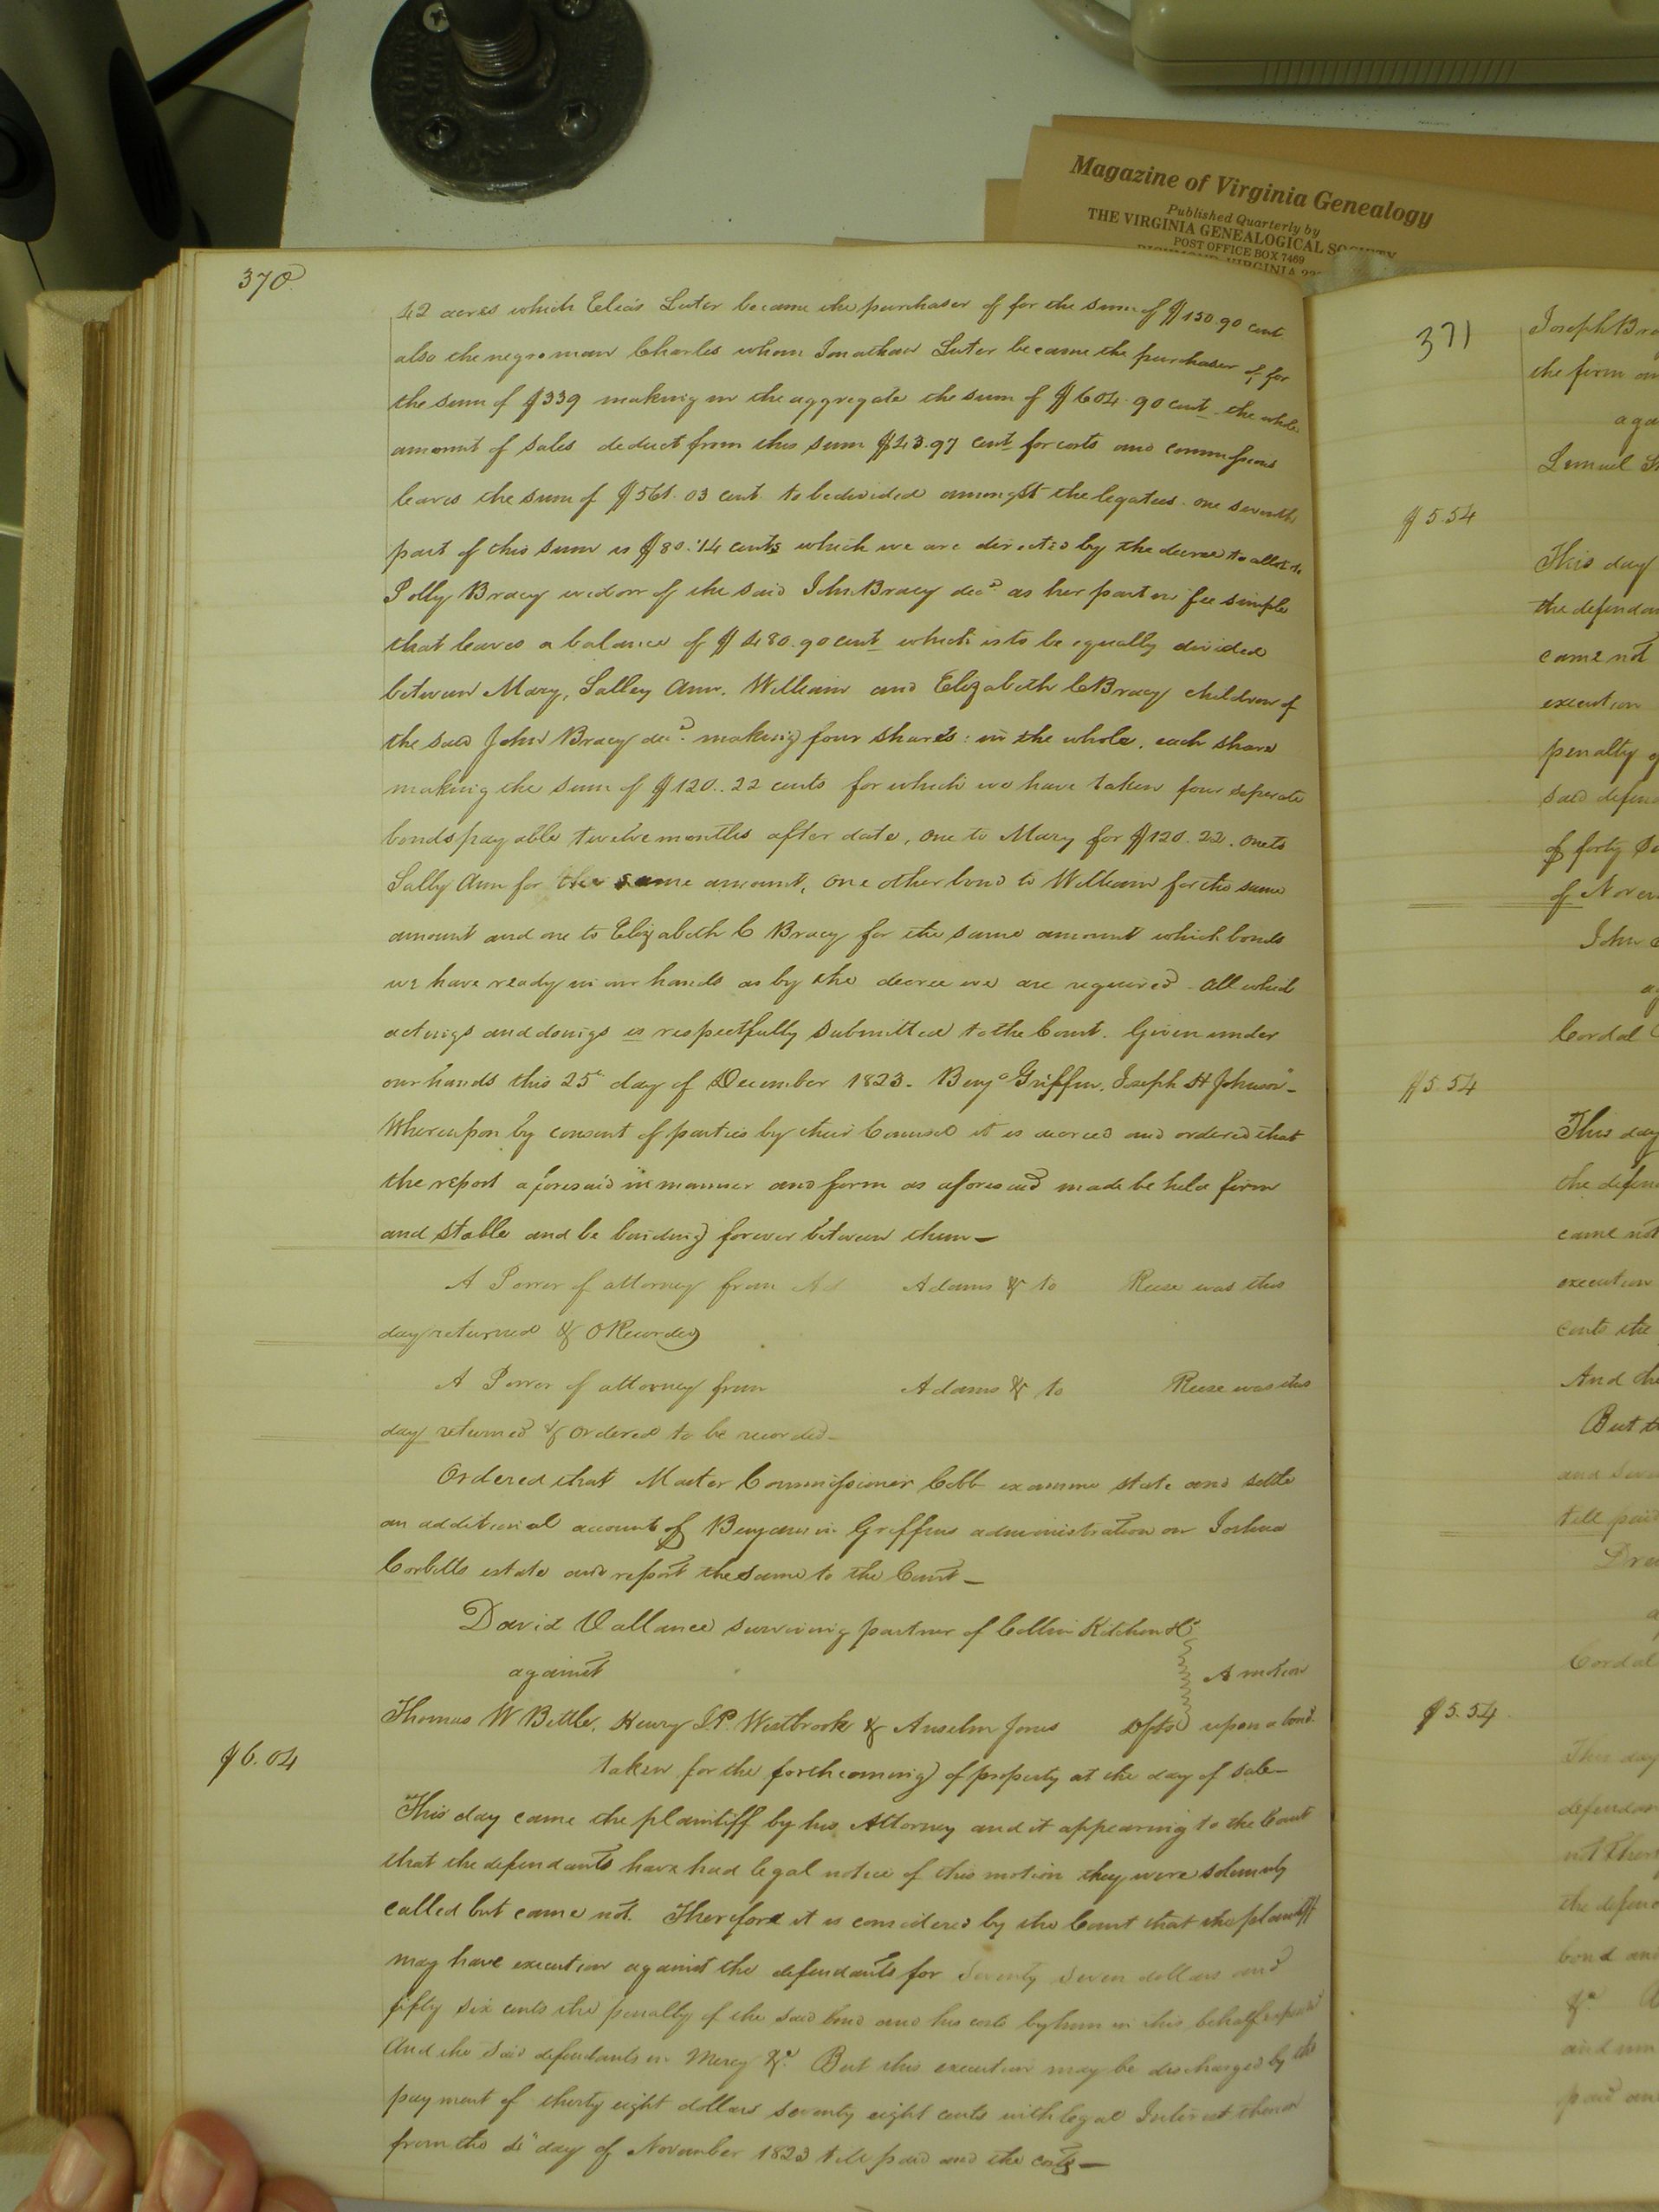 Magazine of Virginia Genealogy
Published Quarterly by
THE VIRGINIA GENEALOGICAL SOCIETY
POST OFFICE BOX 7469
RICHMOND, VIRGINIA 23
370
42 acres which Elias Luter became the purchaser of for the sum of $150.90 cent
also the negro man Charles whom Jonathan Luter became the purchaser of for
the sum of $339 making in the aggregate the sum of $604.90 cent the whole
amount of sales deduct from this sum $43.97 cent for costs and commissions
leaves the sum of $561.03 cent. to be divided amongst the legatees. one seventh
part of this sum is $80.14 cents which we are directed by the decree to allot to
Polly Bracy widow of the said John Bracy decd as her part in fee simple
that leaves a balance of $480.90 cent which is to be equally divided
between Mary, Salley Ann, William and Elizabeth C Bracy children of
the said John Bracy decd. making four shares: in the whole, each share
making the sum of $120..22 cents for which we have taken four seperate
bonds payable twelve months after date, one to Mary for $120.22. one to
Sally Ann for the same amount, one other bond to William for the same
amount and one to Elizabeth C Bracy for the same amount which bonds
we have ready in our hands as by the decree we are required - all which
actings and doings is respectfully submitted to the Court. Given under
our hands this 25th day of December 1823. Benjn Griffin, Joseph H Johnson -
Whereupon by consent of parties by their Counsel it is decreed and ordered that
the report aforesaid in manner and form as aforesaid made be held firm
and stable and be binding forever between them—
A Power of attorney from Ad Adams & to Reese was this
day returned & ORecorded
A Power of attorney from Adams & to Reese was this
day returned & ordered to be recorded—
Ordered that Master Commissioner Cobb examine state and settle
an additional account of Benjamin Griffins administration on Joshua
Corbitts estate and report the same to the Court—
David Vallance surviving partner of Collin Kitchen & Co
against A motion
Thomas W Bittle, Henry J.P. Westbrook & Anselm Jones Defts upon a bond
$6.04
taken for the forthcoming of property at the day of sale—
This day came the plaintiff by his Attorney and it appearing to the Court
that the defendants have had legal notice of this motion they were solemnly
called but came not. Therefore it is considered by the Court that the plaintiff
may have execution against the defendants for seventy seven dollars and
fifty six cents the penalty of the said bond and his costs by him in this behalf expended
And the said defendants in Mercy &c. But this execution may be discharged by the
payment of thirty eight dollars seventy eight cents with legal Interest thereon
from the day of November 1823 till paid and the costs—
371
Joseph Br
the firm an
aga
Lemuel
$5.54
This day
the defendan
came not
execution
penalty of
said defend
of forty
of Novem
John
ag
Cordal
$5.54
This day
the defen
came not
execution
cents the
And the
But th
and seve
till paid
Dre
a
Cordal
$5.54
This day
defendan
not There
the defend
bond and
&c
and nin
paid an